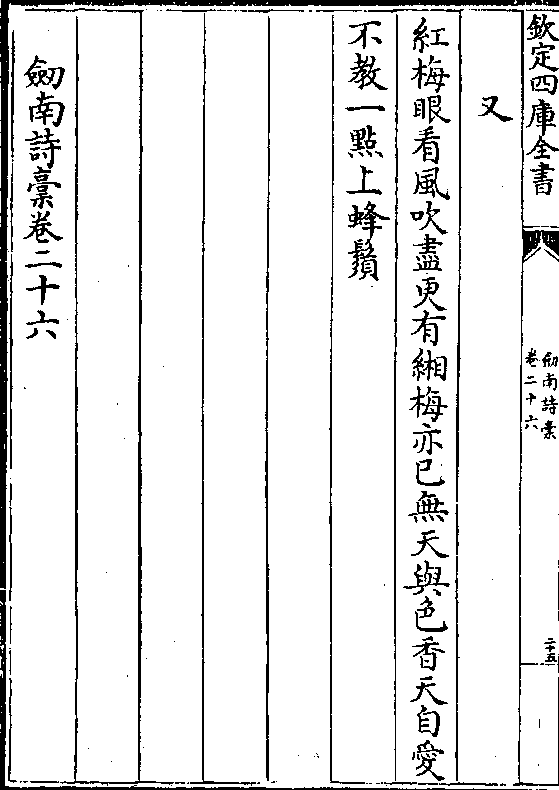 欽定四庫全書
劎南詩稾
卷二十六
二十五
又
紅梅眼看風吹盡更有緗梅亦已無天與色香天自愛
不教一點上蜂鬚
劒南詩稾卷二十六